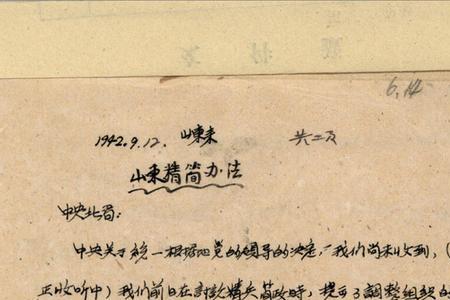 6.14
1942.9.12. 山东来 共二页
山东精简办法
中央北局：
中央关于统一根据地党的领导的决定，我们尚未收到，（
正收听中）我们前日在讨论精兵简政时，提了调整组织的